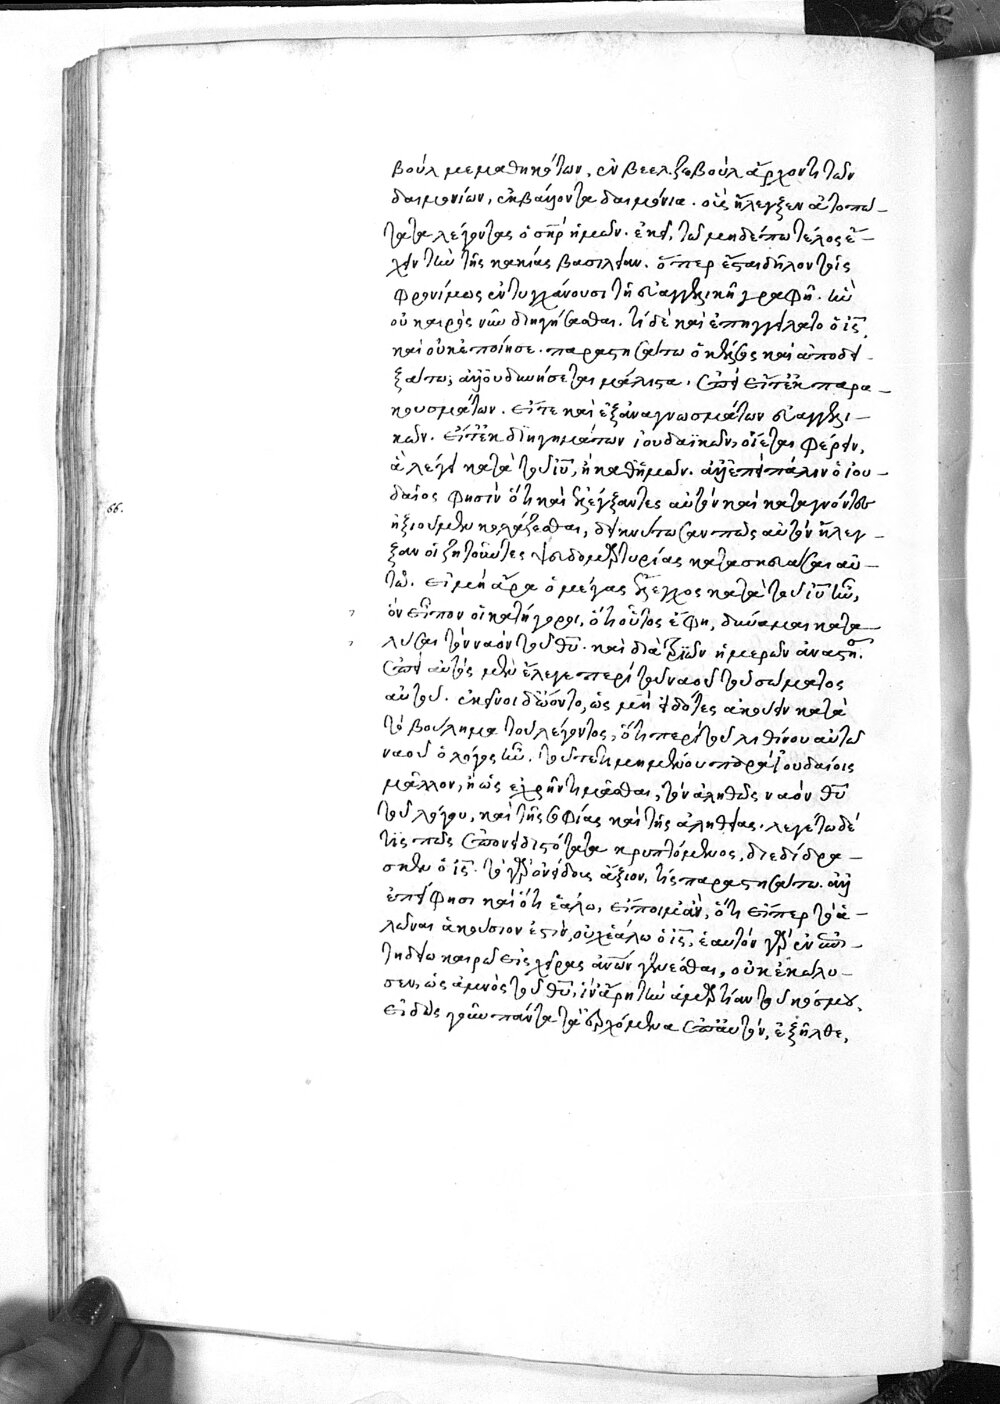 βοὺλ μεμαθηκότων, ἐν βεελζεβοὺλ ἄρχοντι τῶν
δαιμονίων, ἐκβάλλοντα δαιμόνια. οὓς ἤλεγξεν ἀτοπώ-
τατα λέγοντας ὁ σηρ ἡμῶν. ἐπεὶ, τῷ μηδέπω τέλος ἔ-
χειν τὴν τῆς κακίας βασιλείαν. ὅπερ ἔσται δῆλον τοῖς
φρονίμως ἐντυγχάνουσι τῇ εὐαγγελικῇ γραφῇ. ἣν
οὐ καιρὸς νῦν διηγήσασθαι. τί δὲ καὶ ἐπηγγείλατο ὁ ἰς
καὶ οὐκ ἐποίησε. παραστησάτω ὁ κέλσος καὶ ἀποδει-
ξάτω; ἀλλ' οὐ δυνήσεται μάλιστα. ἐπεὶ εἴτ' ἐκ παρα-
κουσμάτων. εἴτε καὶ ἐξ ἀναγνωσμάτων εὐαγγελι-
κῶν. εἴτ' ἐκ διηγημάτων ἰουδαϊκῶν, οἴεται φέρειν,
ἃ λέγει κατὰ τοῦ ιυ, ἢ καθ' ἡμῶν. ἀλλ' ἐπεὶ πάλιν ὁ ἰου-
δαῖος φησὶν ὅτι καὶ ἐλέγξαντες αὐτὸν καὶ καταγνόντες
ἠξιοῦμεν κολάζεσθαι, δεικνύτωσαν πῶς αὐτὸν ἤλεγ-
ξαν οἱ ζητοῦντες ψευδομαρτυρίας κατασκευάσαι αὐ-
τῷ. εἰ μὴ ἄρα ὁ μέγας ἔλεγχος κατὰ τοῦ ιυ ἦν,
ὃν εἶπον οἱ κατήγοροι, ὅτι οὗτος ἔφη, δύναμαι κατα-
λῦσαι τὸν ναὸν τοῦ θυ. καὶ διὰ τριῶν ἡμερῶν ἀναστῆσαι.
ἐπεὶ αὐτὸς μὲν ἔλεγε περὶ τοῦ ναοῦ τοῦ σώματος
αὐτοῦ. ἐκεῖνοι δ' ᾤοντο, ὡς μὴ εἰδότες ἀκούειν κατὰ
τὸ βούλημα τοῦ λέγοντος, ὅτι περὶ τοῦ λιθίνου αὐτῷ
ναοῦ ὁ λόγος ἦν. τοῦ τετιμημένου παρὰ ἰουδαίοις
μᾶλλον, ἢ ὡς ἐχρῆν τιμᾶσθαι, τὸν ἀληθῶς ναὸν θυ
τοῦ λόγου, καὶ τῆς σοφίας καὶ τῆς ἀληθείας. λεγέτω δέ
τις πῶς ἐπονειδιστότατα κρυπτόμενος, διεδίδρα-
σκεν ὁ ις. τὸ γὰρ ὀνείδους ἄξιον, τὶς παραστησάτω. ἀλλ'
ἐπεὶ φησι καὶ ὅτι ἑάλω, εἴποιμ' ἂν, ὅτι εἴπερ τὸ ἁ-
λῶναι ἀκούσιον ἐστὶν, οὐχ' ἑάλω ὁ ις, ἑαυτὸν γὰρ ἐν ἐπι-
τηδείῳ καιρῷ εἰς χεῖρας ἀνων γενέσθαι, οὐκ ἐκώλυ-
σεν, ὡς ἀμνὸς τοῦ θυ, ἵν' ἄρῃ τὴν ἁμαρτίαν τοῦ κόσμου.
εἰδὼς γοῦν πάντα τὰ ἐρχόμενα ἐπ' αὐτὸν, ἐξῆλθε,
66.